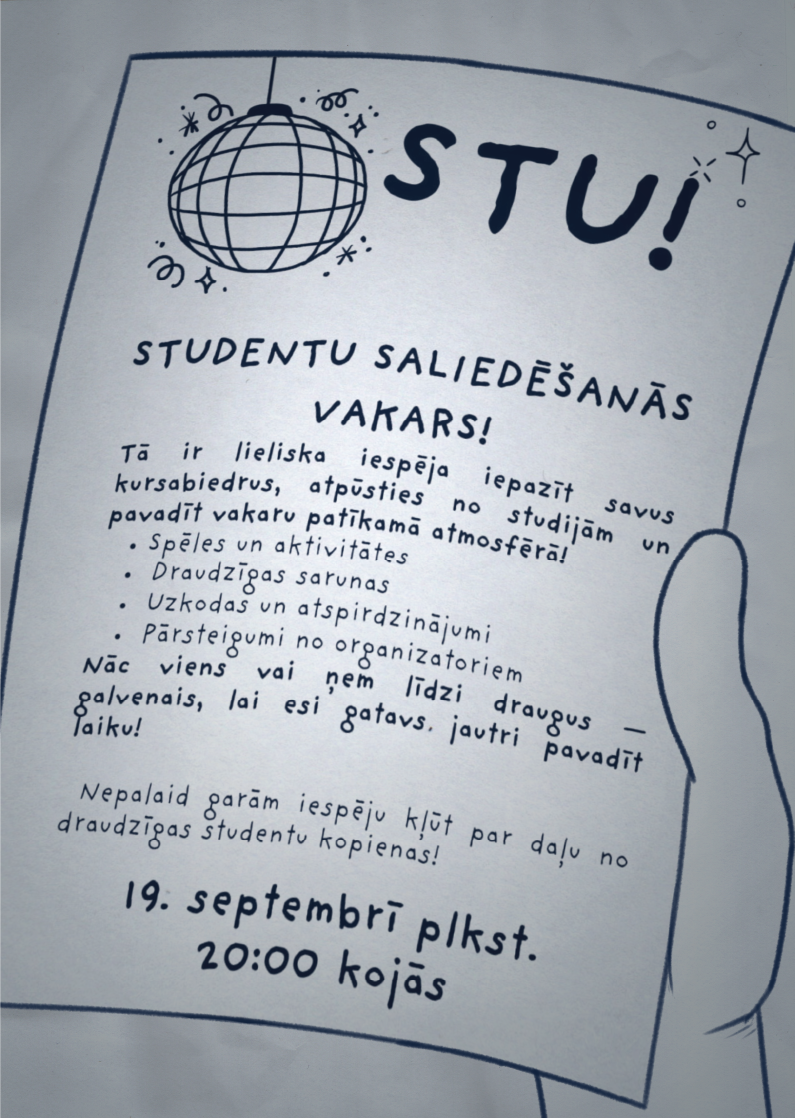 STU!
STUDENTU SALIEDĒŠANĀS
VAKARS!
Tā ir lieliska iespēja iepazīt savus
kursabiedrus, atpūsties no studijām un
pavadīt vakaru patīkamā atmosfērā!
• Spēles un aktivitātes
• Draudzīgas sarunas
• Uzkodas un atspirdzinājumi
• Pārsteigumi no organizatoriem
Nāc viens vai ņem līdzi draugus –
galvenais, lai esi gatavs. jautri pavadīt
laiku!
Nepalaid garām iespēju kļūt par daļu no
draudzīgas studentu kopienas!
19. septembrī plkst.
20:00 kojās